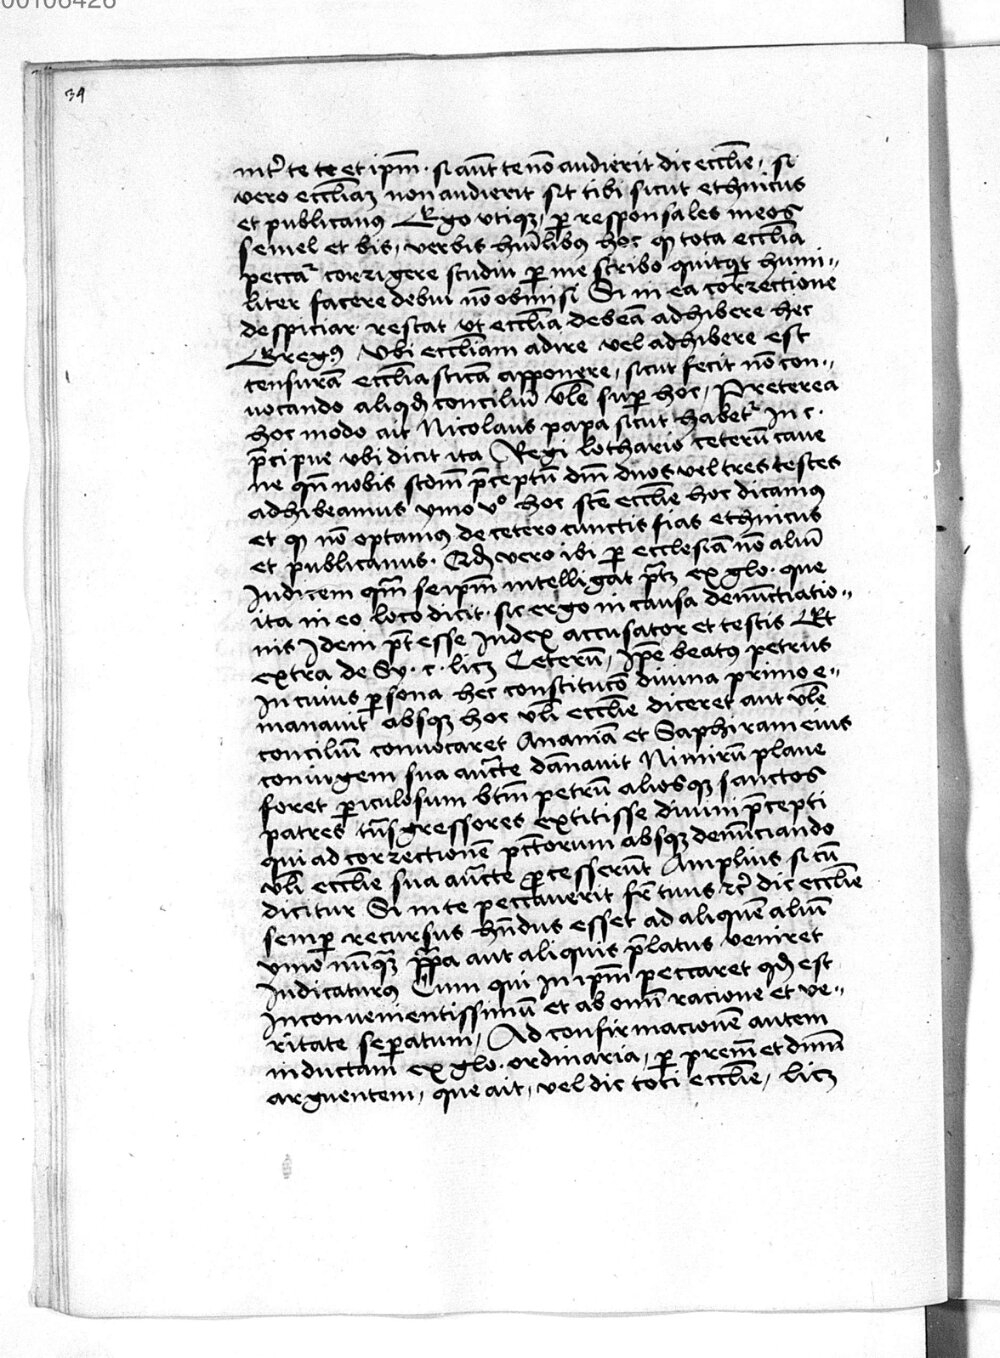 00106426
34
intʳ te te et ipm̄ · si aūt te nō audierit dic ecclie, si
vero eccliaz non audierit sit tibi sicut ethnicus
et publicanꝰ Ego vtiqꝫ, ꝑ responsales meos
semel et bis, verbis hūilibus hoc qͦ tota ecclia
peccat corrigere studui ꝑ me scribo quitqͥt humi-
liter facere debui nō obmisi Si in ea correctione
despiciar restat vt eccliā debeā adhibere hec
Gregꝰ Vbi eccliam adire vel adhibere est
censurā ecclia sticā apponere, sicut fecit nō con-
uocando aliqd̄ conciliū vl̄e suꝑ hoc, Preterea
hoc modo ait Nicolaus papa sicut habetʳ In c.
p̄cipue vbi dicit ita Regi lothario ceterū caue
ne qn̄ nobis scdm̄ p̄ceptū dm̄ duos vel tres testes
adhibeamus ymo vͦ hoc scē ecclie hoc dicamꝰ
et qͦ nō optamus de cetero cunctis fias ethnicus
et publicanus. Qd̄ vero ibi ꝑ ecclesiā nō aliū
Iudicem qm̄ seipm̄ intelligat pꝫ ex glo. que
ita in eo loco dicit. sic ergo in causa denūctiatio-
nis Idem pt̄ esse Iudex accusator et testis Et
extra de Sy. c. licꝫ Ceterū, Ip̄e beatꝰ petrus
In cuius ꝑsona hec constitucō diuina primo e-
manauit absqꝫ hoc vl̄i ecclie diceret aut vl̄e
conciliū conuocaret Ananiā et Saphiram eius
coniugem sua auc̄te dānauit Nimirū plane
foret ꝑiculosum btm̄ petrū aliosqꝫ sanctos
patres tn̄sgressores extitisse diuini p̄cepti
qui ad correctionē pctorum absqꝫ denūciando
vl̄i ecclie sua auc̄te ꝓcesserūt Amplius si cū
dicitur Si in te peccauerit fr̄ tuus ⁊c̄ dic ecclie
semꝑ recursus hn̄dus esset ad aliquē aliū
ymo nūqꝫ ppa aut aliquis p̄latus veniret
Iudicaturꝰ Cum qui In ipm̄ peccaret qd̄ est
Inconuenientissimū et ab omī racione et ve-
ritate seꝑatum, Ad confirmacionē autem
inductam ex glo. ordinaria, ꝑ prem̄ et dm̄m
arguentem, que ait, vel dic toti ecclie, licꝫ